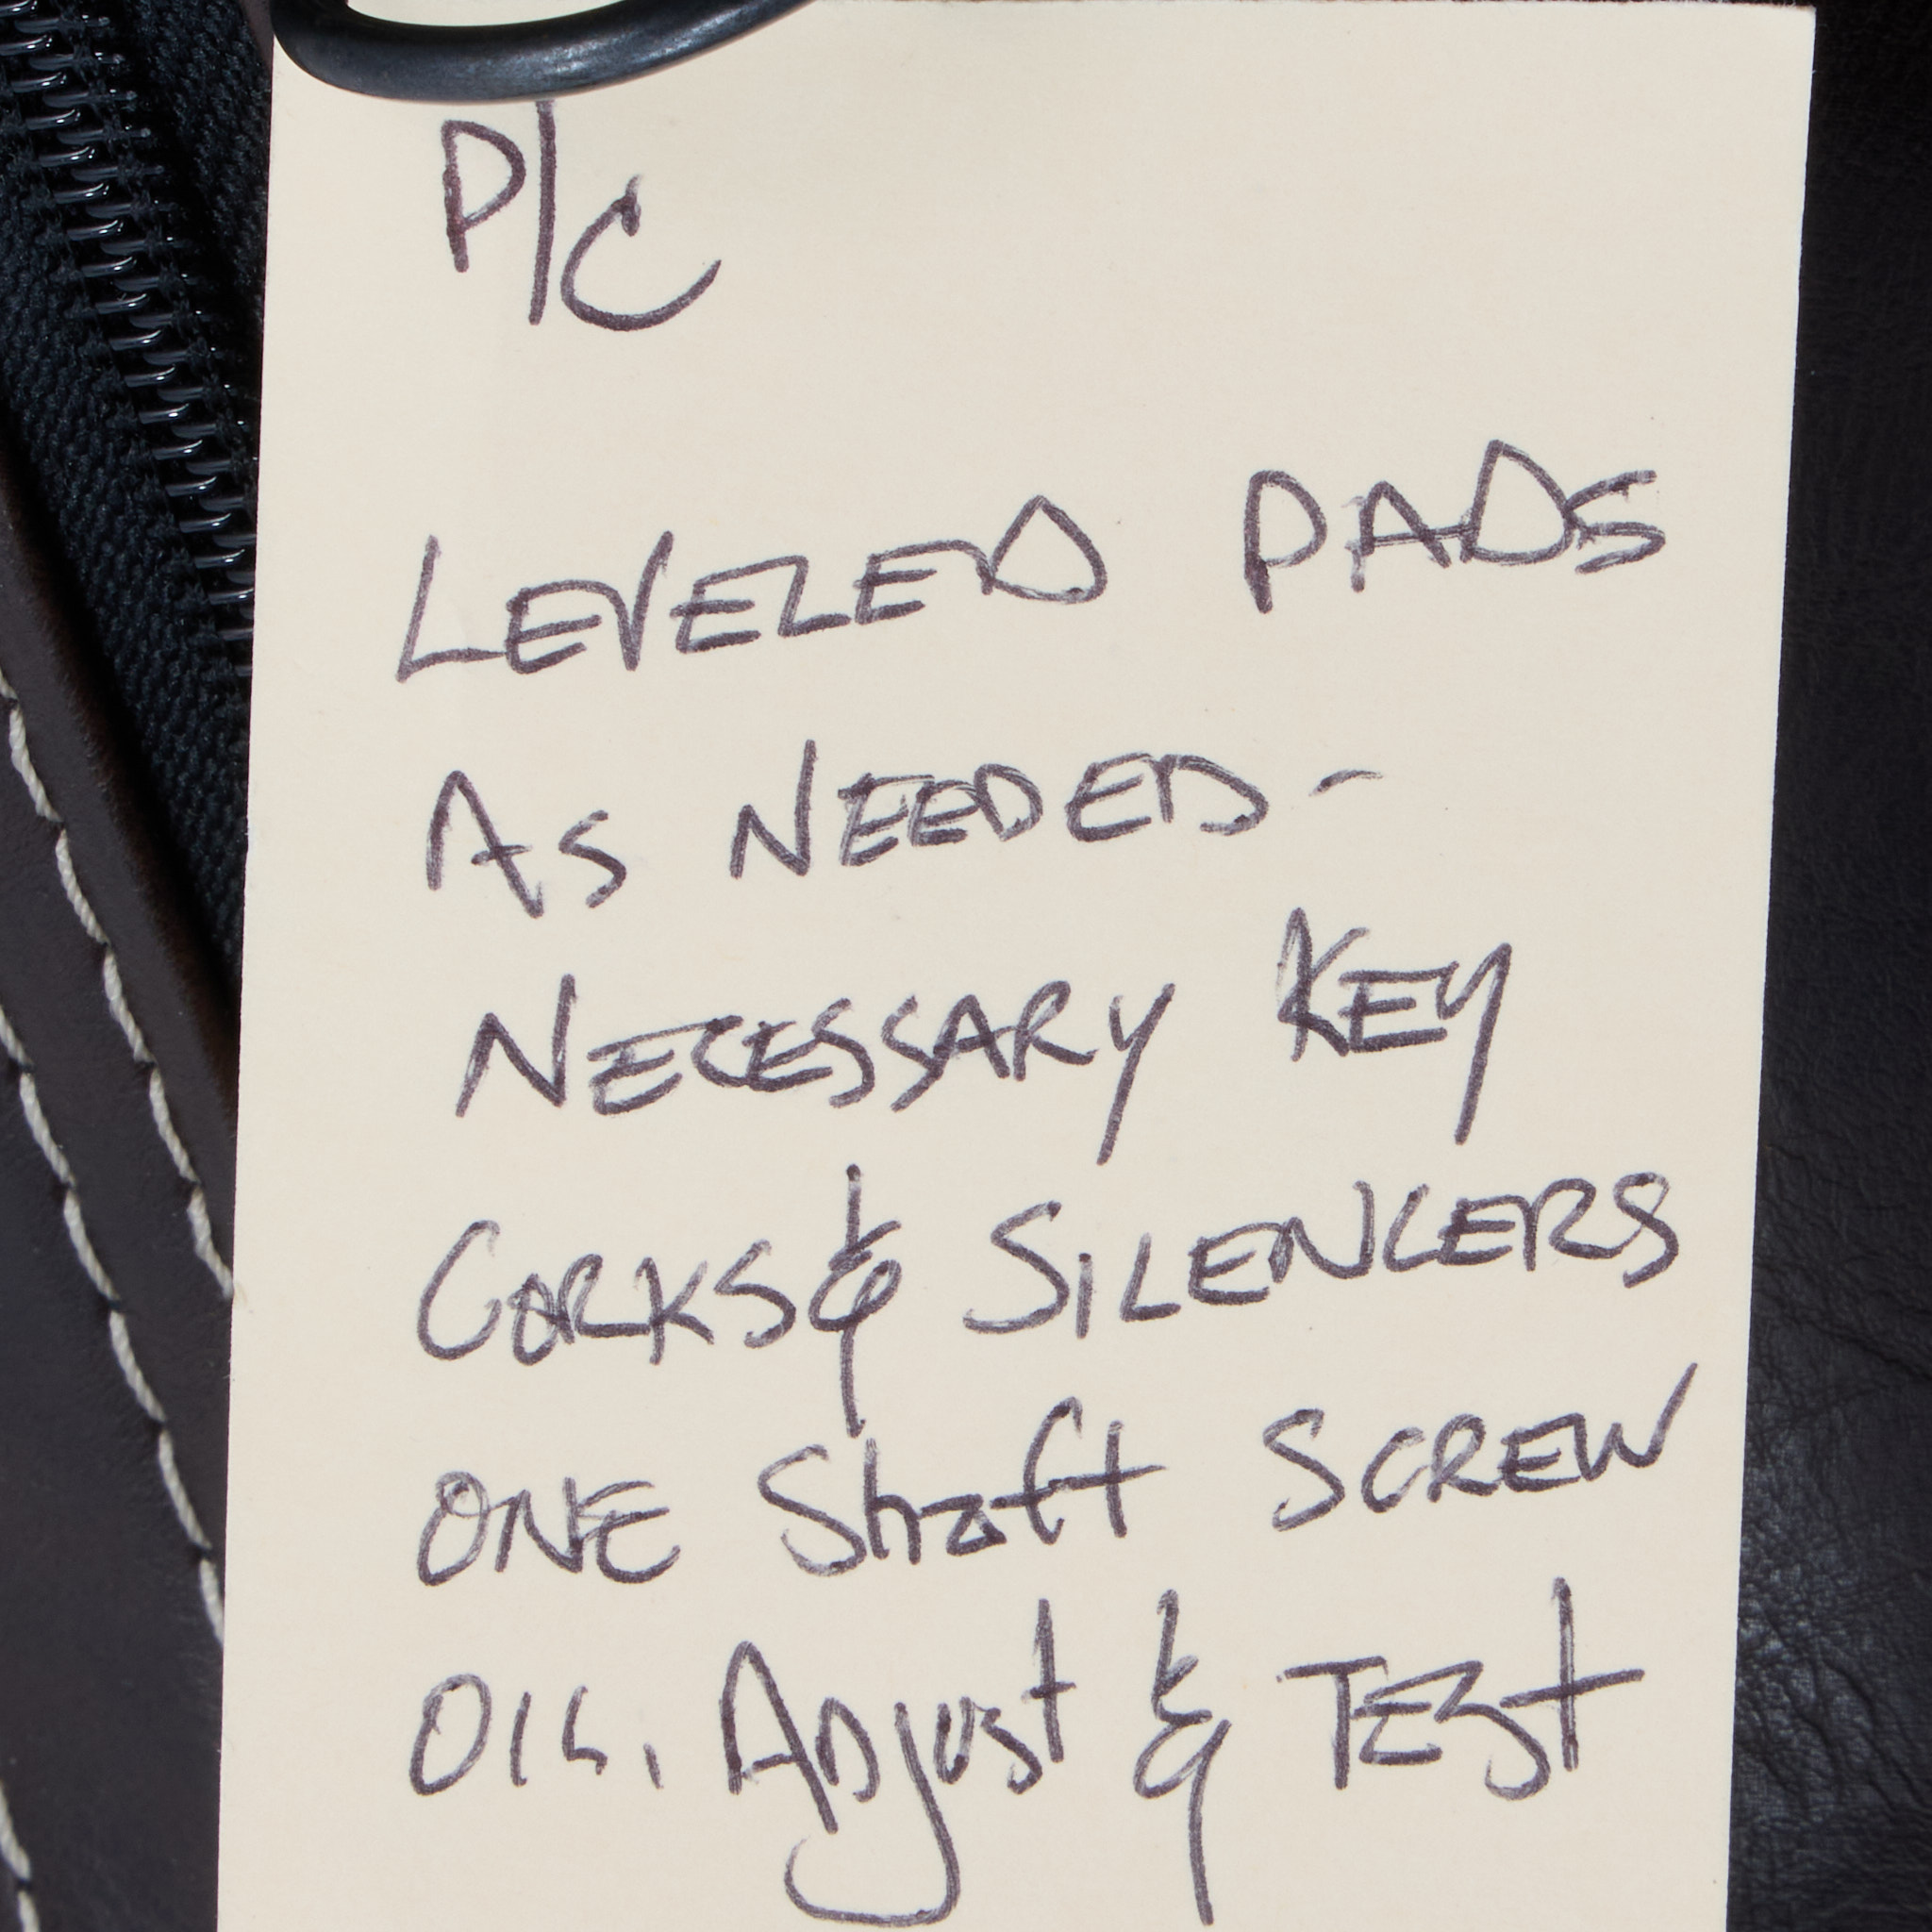 P/C
LEVELED PADS
AS NEEDED-
NECESSARY KEY
CORKS & SILENCERS
ONE Shaft SCREW
OIL, ADjust & TEst